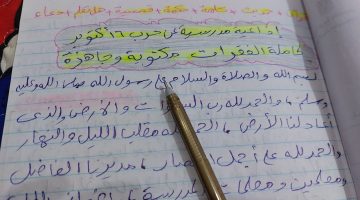 إذاعة مدرسية عن حرب ٦ أكتوبر
كاملة الفقرات مكتوبة وجاهزة
بسم الله والصلاة والسلام على رسول الله صلى الله عليه
وسلم، والحمد لله رب السموات والأرض والذي
لنا الأرض، الحمد لله مقلب الليل والنهار
والحمد لله على أجل، مديرنا الفاضل
ومعلمين ومعلمات المدرسة